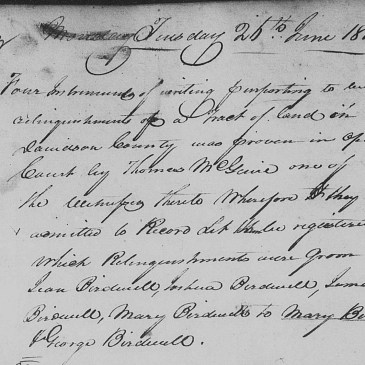 Tuesday 26th June 18
Four Instruments of writing purporting to be
relinquishments of a Tract of land in
Davidson County was proven in op
Court by Thomas McGuire one of
the witnesses thereto Wherefore they
admitted to Record Let be registere
which Relinquishments were from
Jean Birdwell, Joshua Birdwell,
Birdwell, Mary Birdwell to Mary Bi
George Birdwell.